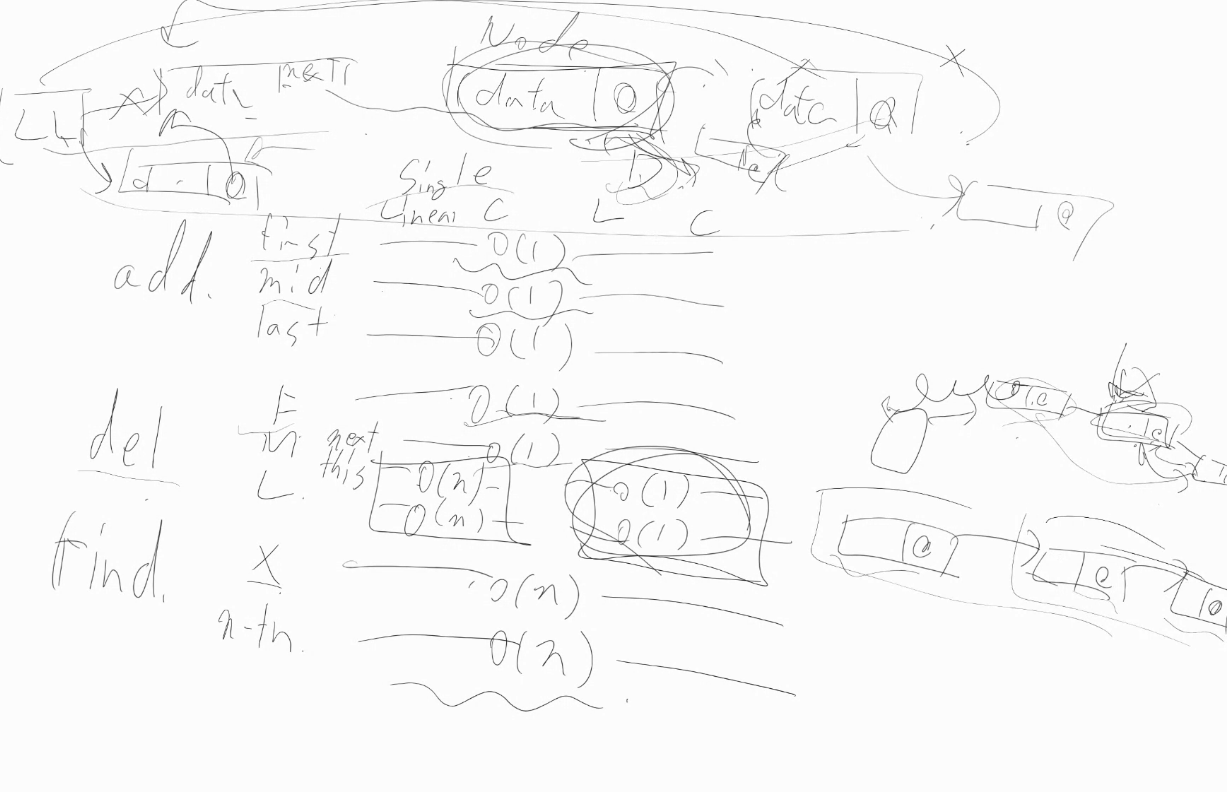 Node
LL data next data @ data @
d @ @
Single D
Linear C L C
@
add. first O(1)
mid O(1)
last O(1)
del F O(1)
M next O(1)
L. this O(n) O(1)
O(n) O(1)
find. X O(n)
n-th. O(n)
@ @ @